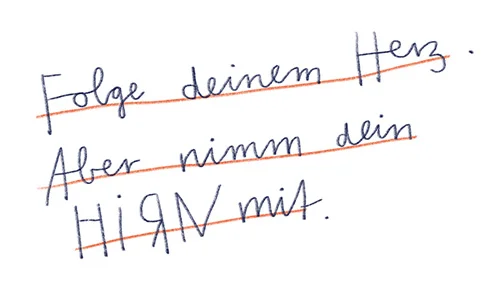 Folge deinem Herz.
Aber nimm dein
HiЯN mit.